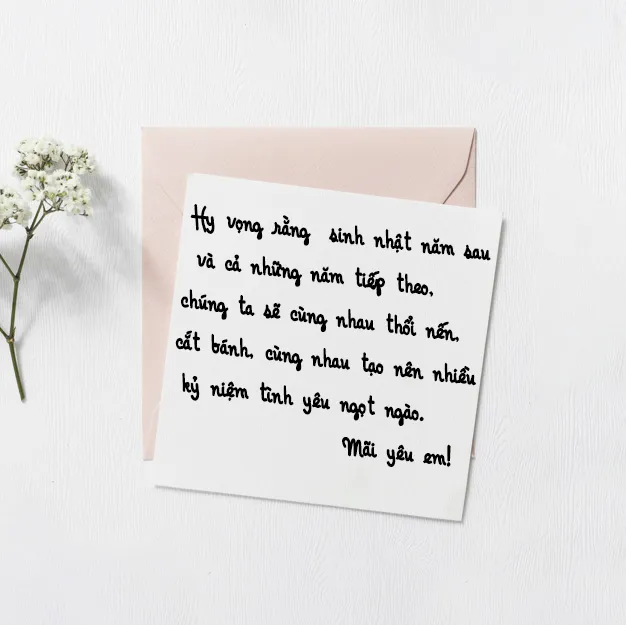 Hy vọng rằng sinh nhật năm sau
và cả những năm tiếp theo,
chúng ta sẽ cùng nhau thổi nến,
cắt bánh, cùng nhau tạo nên nhiều
kỷ niệm tình yêu ngọt ngào.
Mãi yêu em!